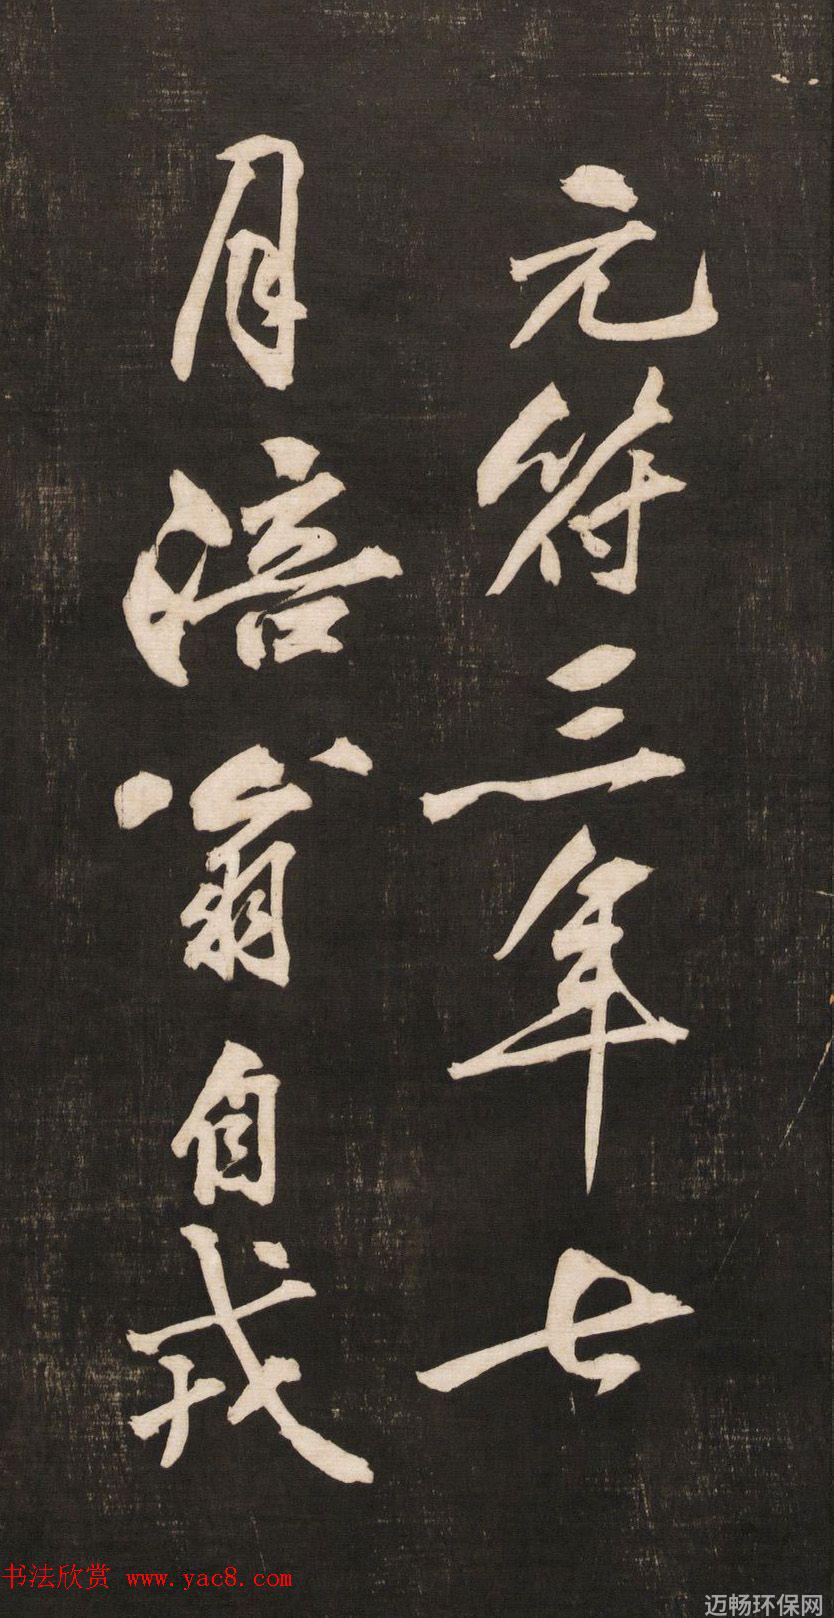 元符三年七
月涪翁自戎
书法欣赏 www.yac8.com
迈畅环保网